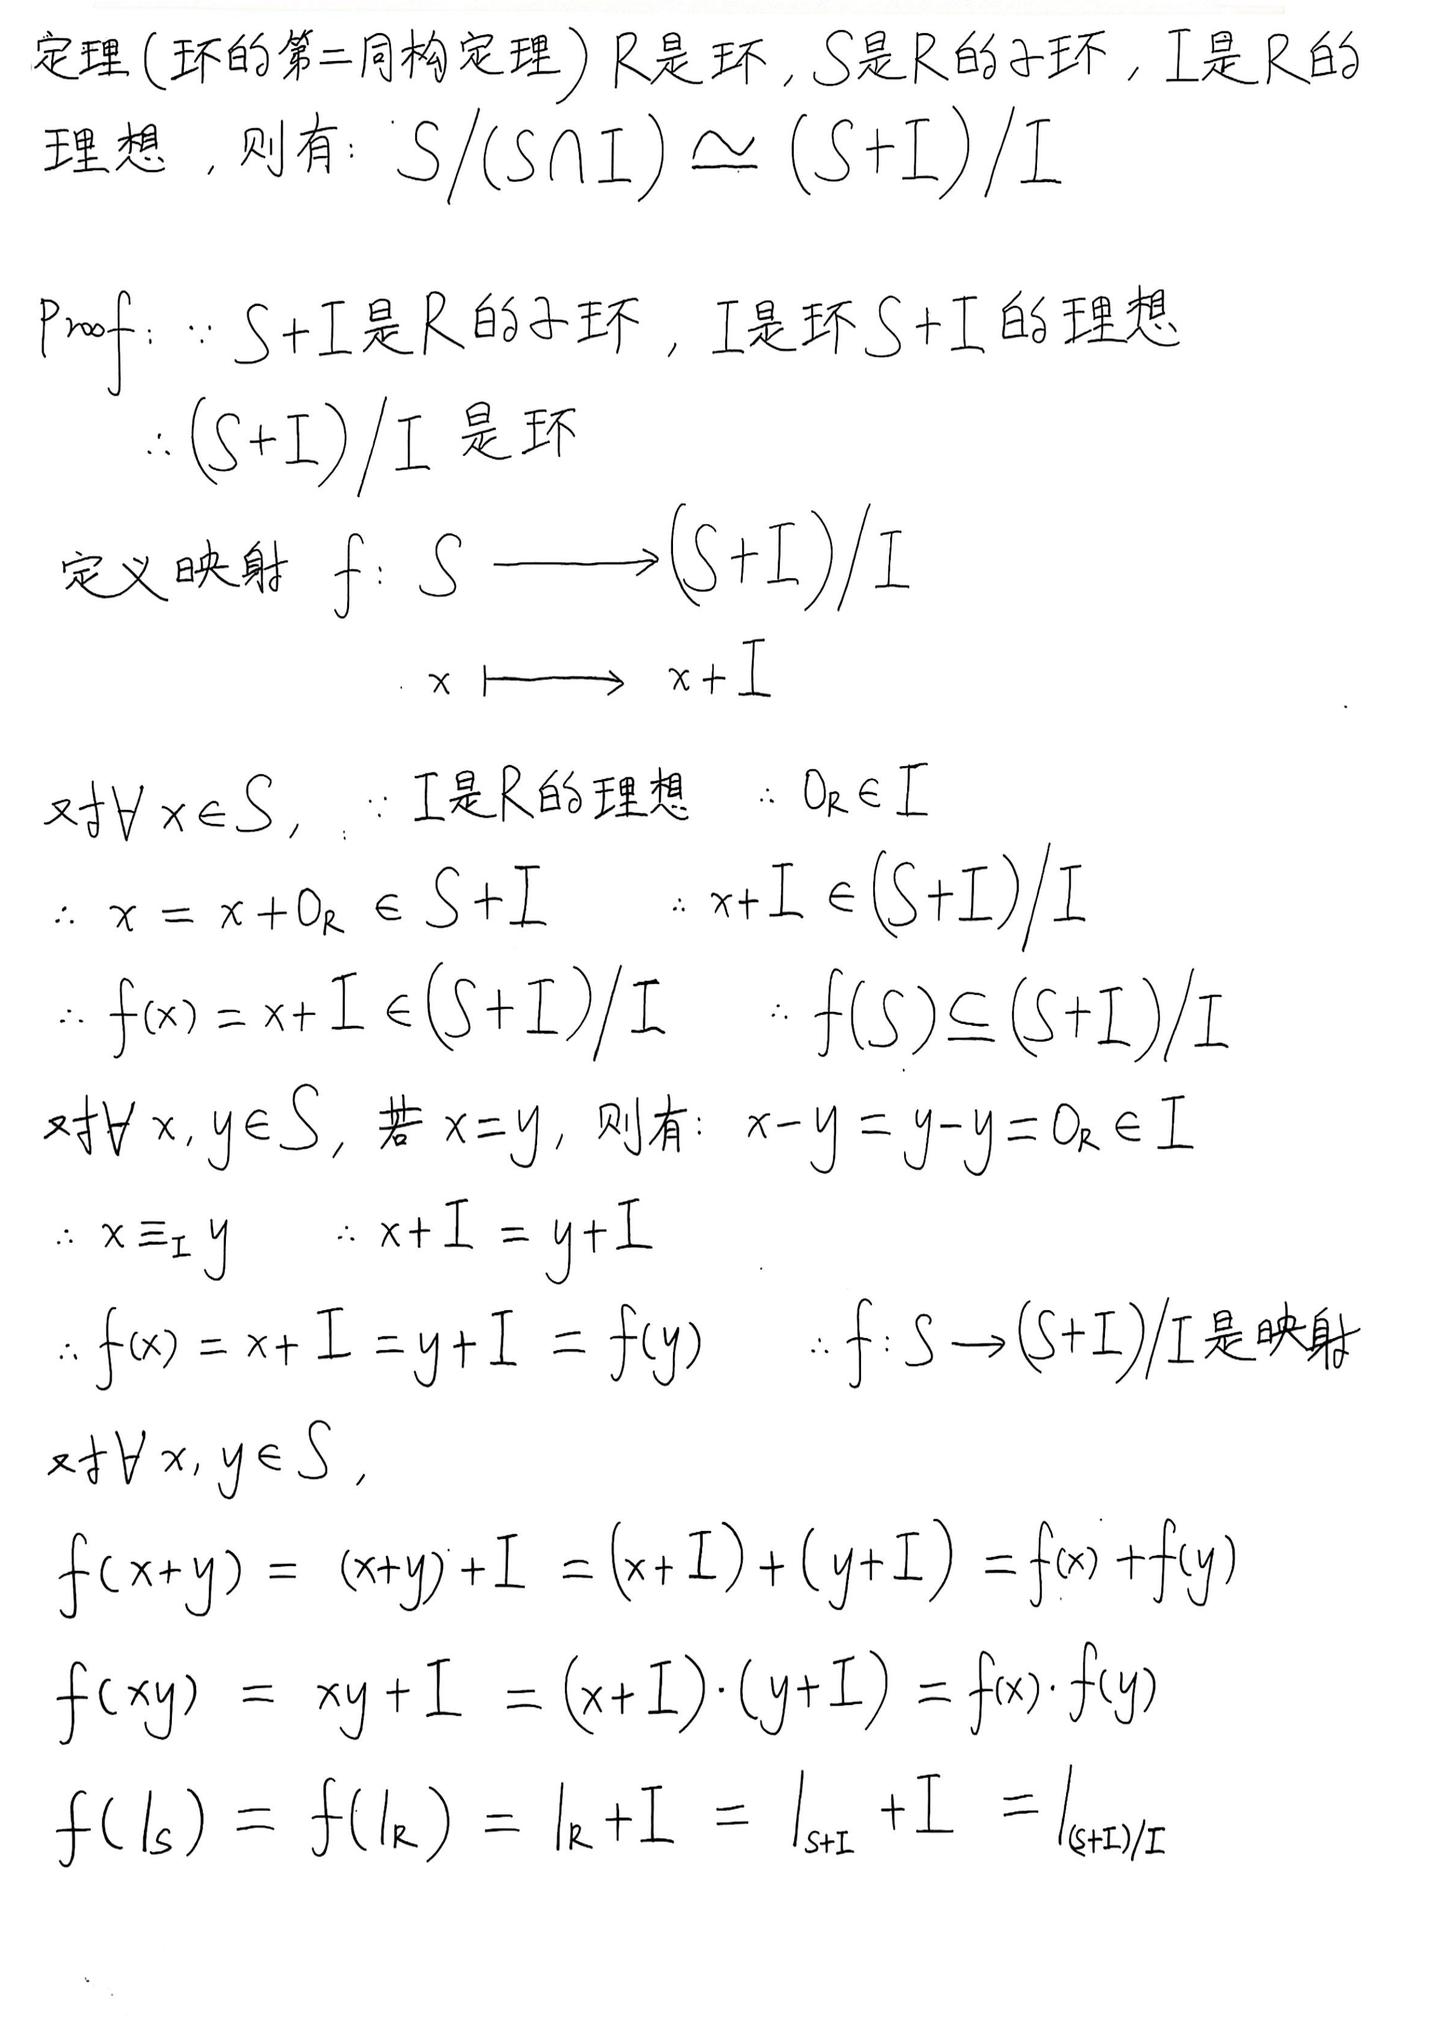 定理(环的第二同构定理) R是环, S是R的子环, I是R的
理想, 则有: S/(S∩I) ≃ (S+I)/I
Proof: ∵ S+I是R的子环, I是环S+I的理想
∴ (S+I)/I 是环
定义映射 f: S ⟶ (S+I)/I
x ⟼ x+I
对∀x∈S, ∵ I是R的理想 ∴ 0_R∈I
∴ x = x+0_R ∈ S+I ∴ x+I ∈ (S+I)/I
∴ f(x) = x+I ∈ (S+I)/I ∴ f(S) ⊆ (S+I)/I
对∀x, y∈S, 若 x=y, 则有: x-y = y-y = 0_R ∈ I
∴ x ≡_I y ∴ x+I = y+I
∴ f(x) = x+I = y+I = f(y) ∴ f: S → (S+I)/I 是映射
对∀x, y∈S,
f(x+y) = (x+y)+I = (x+I)+(y+I) = f(x)+f(y)
f(xy) = xy+I = (x+I)·(y+I) = f(x)·f(y)
f(1_S) = f(1_R) = 1_R+I = 1_{S+I}+I = 1_{(S+I)/I}